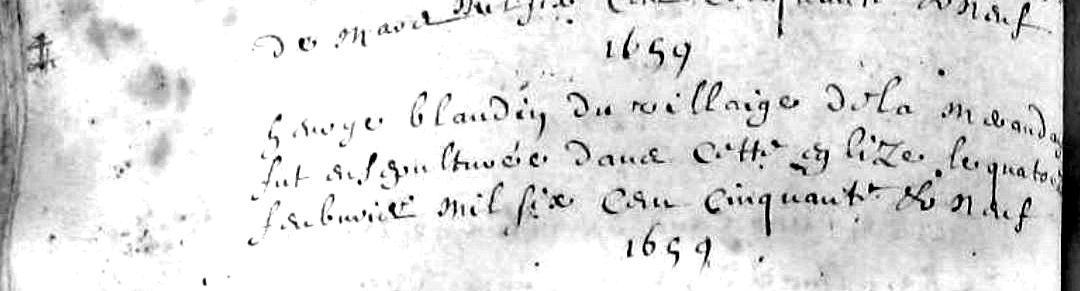 de mars mil six cent cinquante & neuf
1659
blandin du village de la
fut ensepulturée dans cette eglize le quator
febvrier mil six cen cinquante & neuf
1659